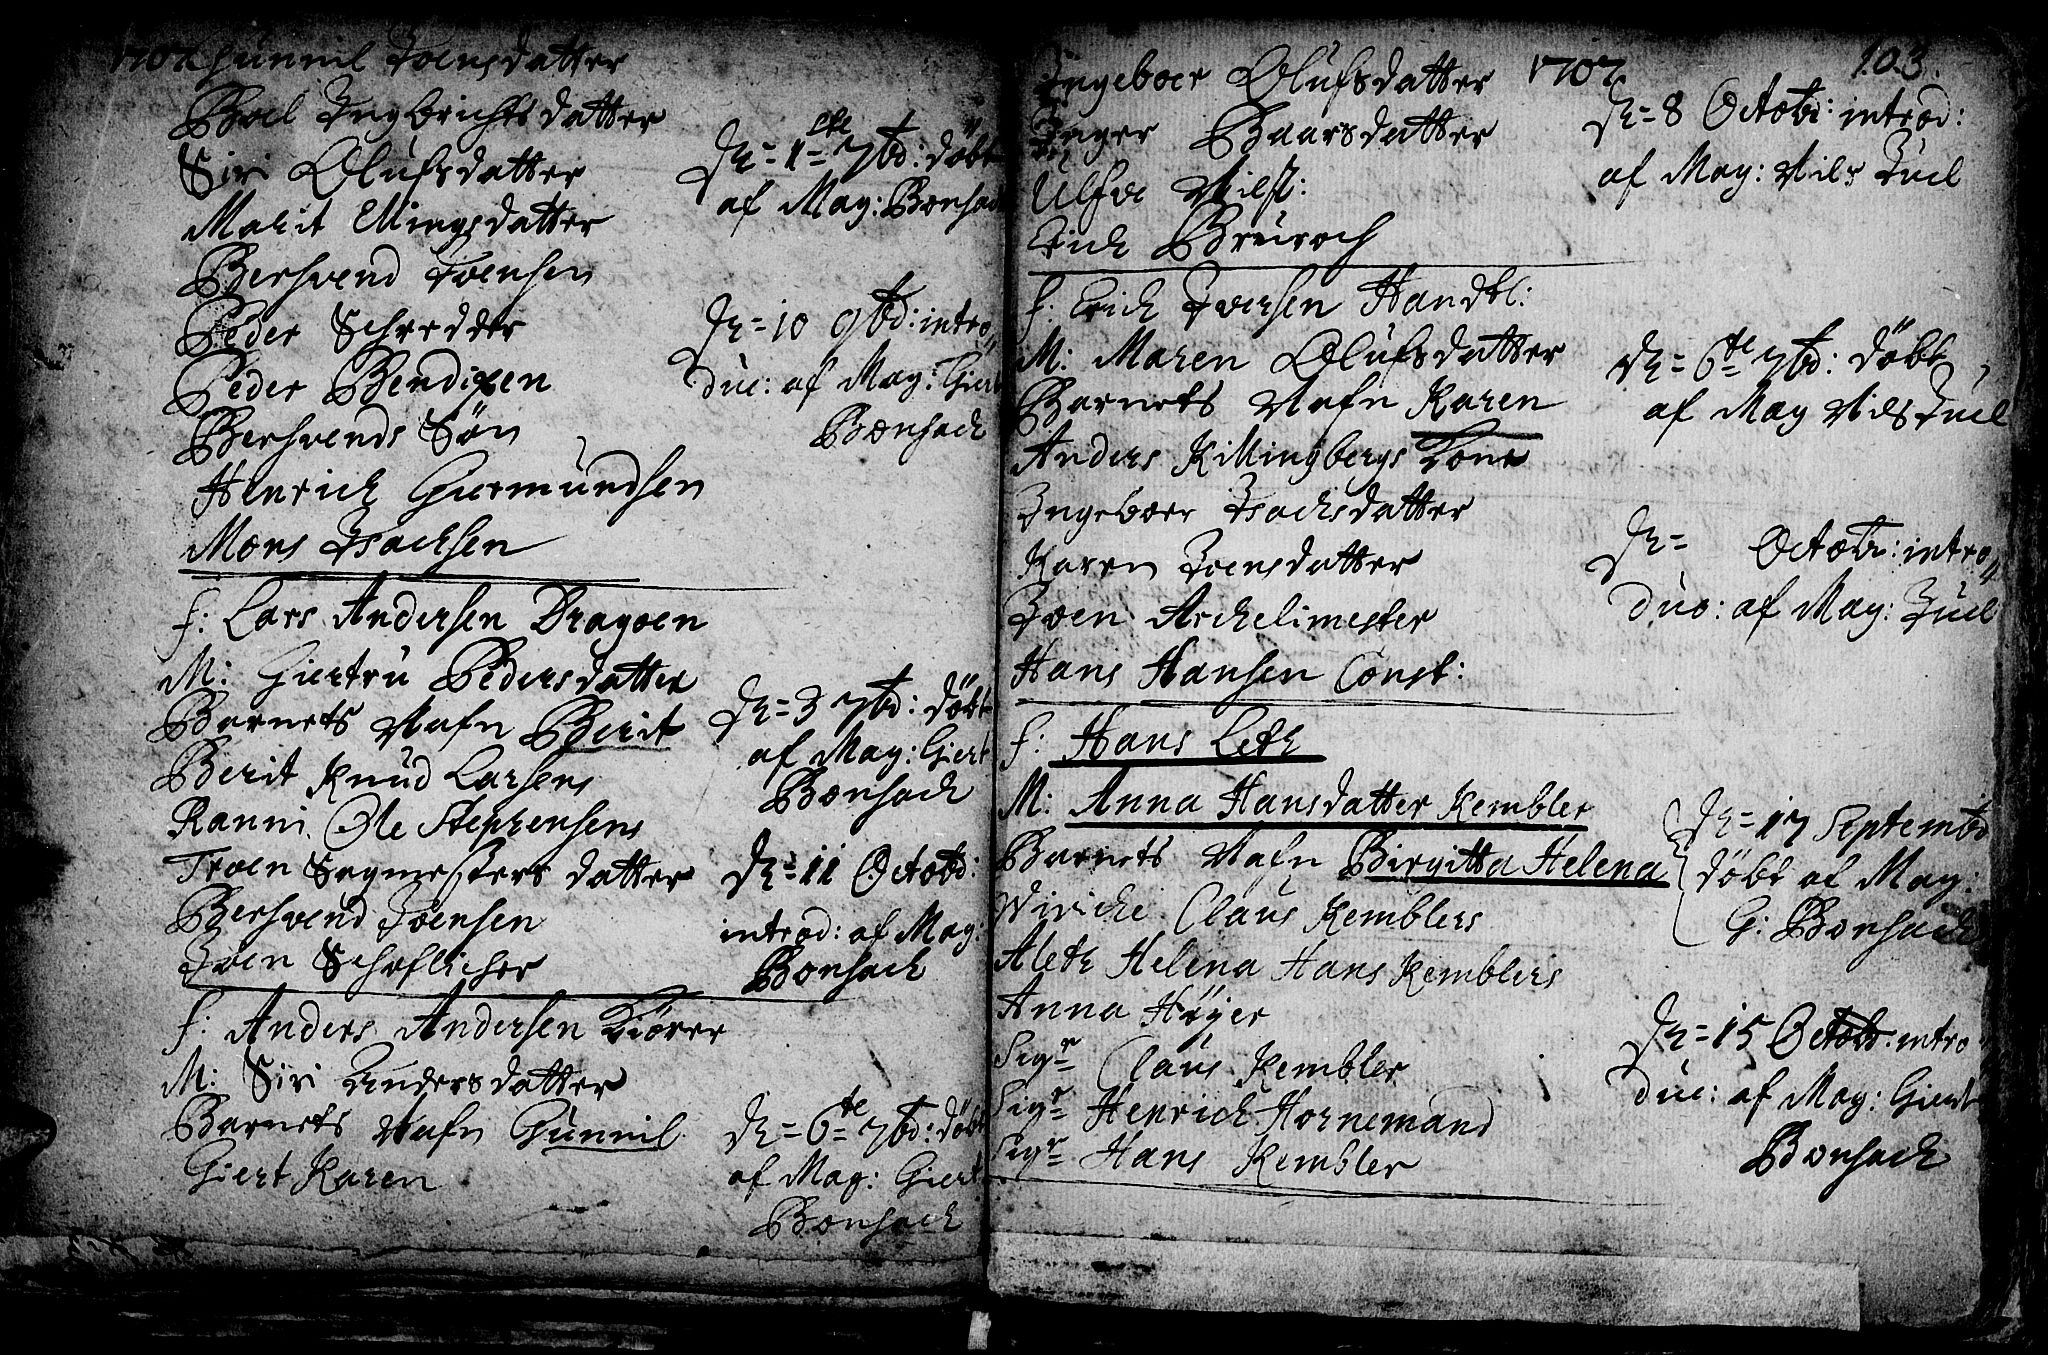 1707 Gunnil Joensdatter
Boel Ingbrichtsdatter
Siri Olufsdatter
Marit Ellingsdatter
Berhvend Joensen
Peder Schredder
Peder Bendixen
Berhvends Søn
Henrich Giermundsen
Mons Isachsen
d: 1te 7bd: döbt
af Mag: Bonsach
d: 10 9bd: intro
duc: af Mag: Giert
Bonsach
f: Lars Andersen Dragoen
M: Giertru Pedersdatter
Barnets Nafn Berit
Berit Knud Larsens
Ranni Ole Stephensens
Troen Segmesters datter
Berhvend Joensen
Joen Schoflicher
d: 3 7bd: döbt
af Mag: Giert
Bonsach
d: 11 Octobd:
introd: af Mag:
Bonsach
f: Anders Andersen Kiörer
M: Siri Andersdatter
Barnets Nafn Gunnil
Giert Karen
d: 6te 7bd: döbt
af Mag: Giert
Bonsach
Ingeboer Olufsdatter 1707 103.
Inger Baarsdatter
Nilss:
Erich Bruroch
d: 8 Octobr: introd:
af Mag: Nils Juel
f: Erich Iversen Handtl:
M: Maren Olufsdatter
Barnets Nafn Karen
Anders Killingbergs Kone
Ingeboer Isachsdatter
Karen Joensdatter
Joen Archelimester
Hans Hansen Const:
d: 6te 7bd: döbt
af Mag Nils Juel
d: Octobr: intro
duc: af Mag: Juel
f: Hans Leth
M: Anna Hansdatter Kembler
Barnets Nafn Birgitta Helena
Wiviche Claus Kemblers
Aleth Helena Hans Kemblers
Anna Høyer
Sigr Claus Kembler
Sigr Henrich Hornemand
Sigr Hans Kembler
d: 17 Septembd
döbt af Mag:
G: Bonsach
d: 15 Octobr: intro
duc: af Mag: Giert
Bonsach